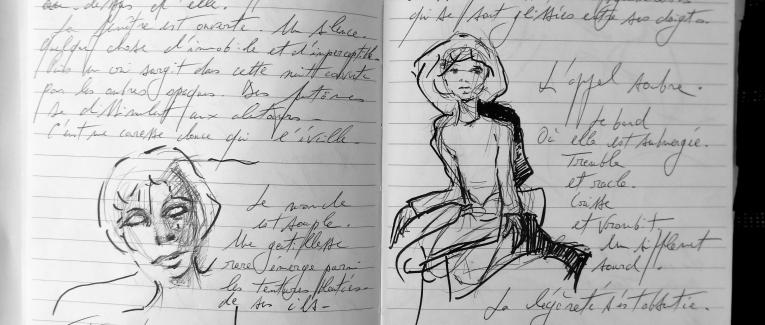 au-dessus d'elle.
La fenêtre est ouverte. Un silence.
Quelque chose d'immobile et d'imperceptible.
Puis un cri surgit dans cette nuit couverte
par les ombres opaques. Des fantômes
se dissimulent aux alentours.
C'est une caresse douce qui l'éveille.
Le monde
est souple.
Une gentillesse
rare émerge parmi
les
de ses cils.
qui se sont glissées entre ses doigts.
L'appel sombre.
Le bord
Où elle est submergée.
Tremble
et racle.
Crisse
et vrombit.
Un sifflement
sourd.
La légèreté s'est